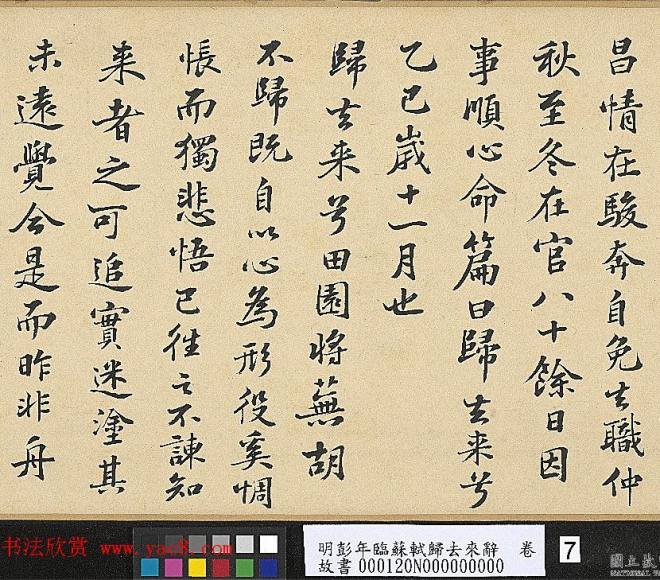 昌情在駿奔自免去職仲
秋至冬在官八十餘日因
事順心命篇曰歸去来兮
乙巳歲十一月也
歸去来兮田園將蕪胡
不歸既自以心為形役奚惆
悵而獨悲悟已往之不諫知
来者之可追實迷塗其
未遠覺今是而昨非舟
书法欣赏 www.yac8.com
明彭年臨蘇軾歸去來辭 卷
故書000120N000000000
7
國立故
NATIONAL